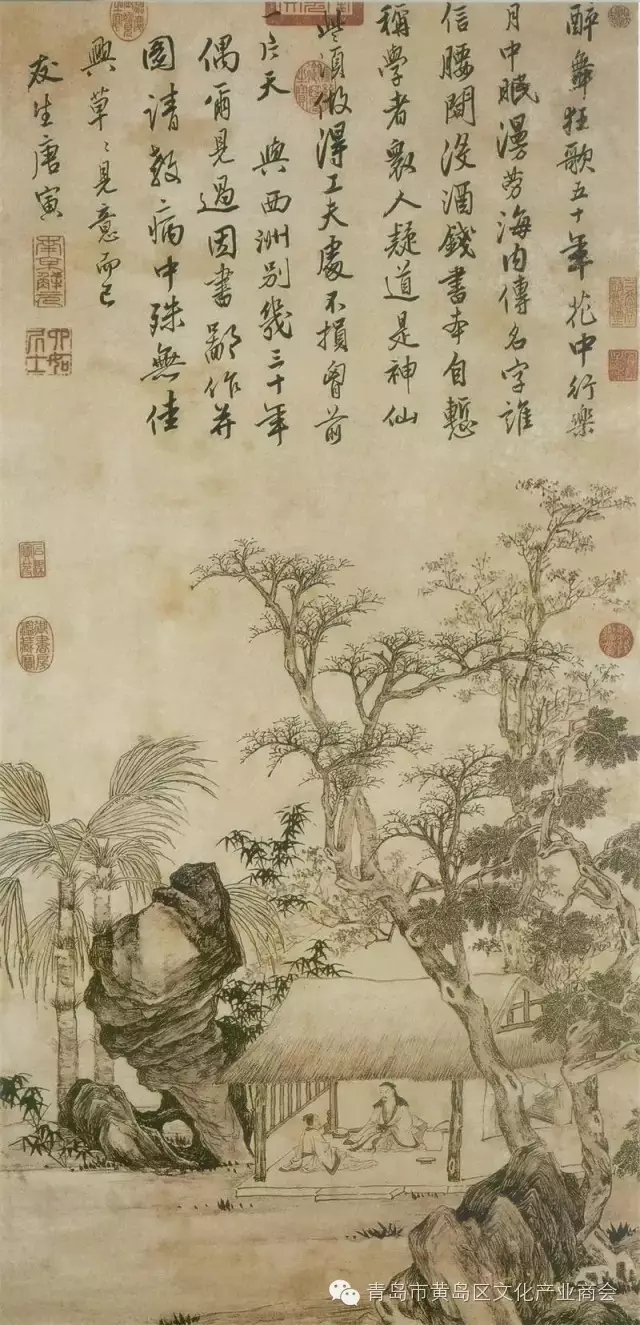 醉舞狂歌五十年花中行樂
月中眠漫勞海内傳名字誰
信腰間沒酒錢書本自慙
稱學者衆人疑道是神仙
些須做得工夫處不損胷前
一片天與西洲別幾三十年
偶爾見過因書鄙作并
圖請教病中殊無佳
興草〻見意而已
友生唐寅
南京解元
六如居士
青岛市黄岛区文化产业商会